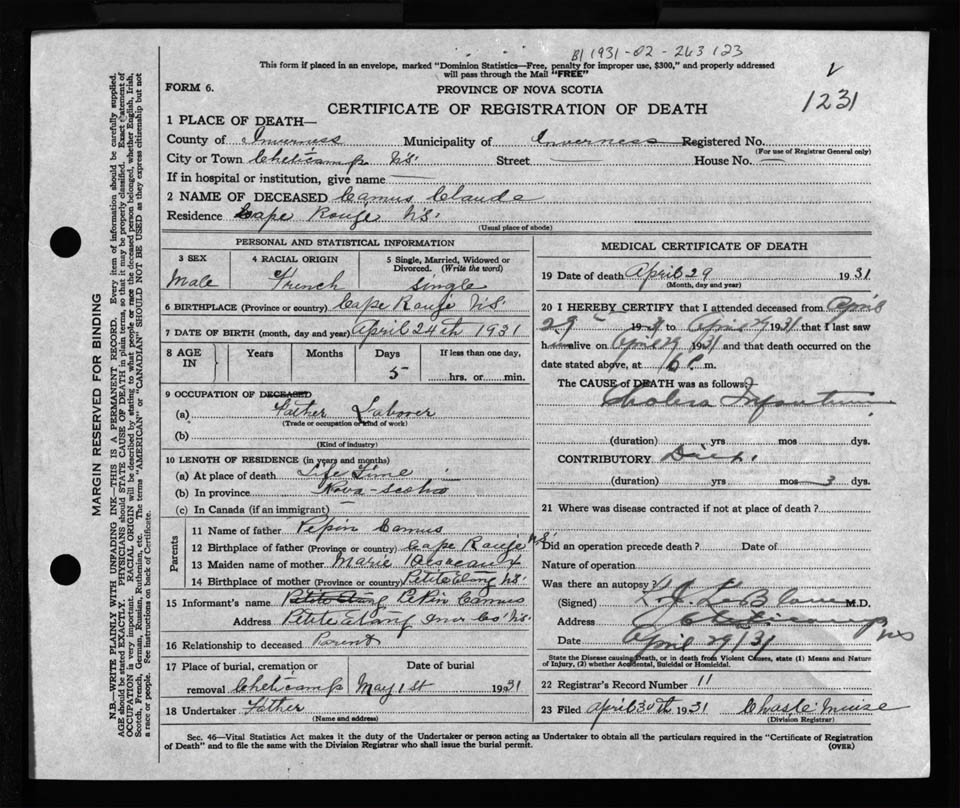 B1 1931-02-263 123
This form if placed in an envelope, marked "Dominion Statistics—Free, penalty for improper use, $300," and properly addressed
will pass through the Mail "FREE"
1231
FORM 6.
PROVINCE OF NOVA SCOTIA
CERTIFICATE OF REGISTRATION OF DEATH
MARGIN RESERVED FOR BINDING
N.B.—WRITE PLAINLY WITH UNFADING INK—THIS IS A PERMANENT RECORD. Every item of information should be carefully supplied.
AGE should be stated EXACTLY. PHYSICIANS should STATE CAUSE OF DEATH in plain terms, so that it may be properly classified. Exact statement of
OCCUPATION is very important. RACIAL ORIGIN will be described by stating to what people or race the deceased person belonged, whether English, Irish,
Scotch, French, German, Russian, Ruthenian, etc. The terms "AMERICAN" or "CANADIAN" SHOULD NOT BE USED as they express citizenship but not
a race or people. See instructions on back of Certificate.
1 PLACE OF DEATH—
County of Inverness Municipality of Inverness Registered No.
(For use of Registrar General only)
City or Town Cheticamp N.S. Street — House No. —
If in hospital or institution, give name —
2 NAME OF DECEASED Camus Claude
Residence Cape Rouge N.S.
(Usual place of abode)
PERSONAL AND STATISTICAL INFORMATION
3 SEX 4 RACIAL ORIGIN 5 Single, Married, Widowed or Divorced. (Write the word)
Male French Single
6 BIRTHPLACE (Province or country) Cape Rouge N.S.
7 DATE OF BIRTH (month, day and year) April 24th 1931
8 AGE IN Years Months Days If less than one day,
5 hrs. or min.
9 OCCUPATION OF DECEASED
(a) Father Laborer
(Trade or occupation or kind of work)
(b)
(Kind of industry)
10 LENGTH OF RESIDENCE (in years and months)
(a) At place of death Life Time
(b) In province Nova-Scotia
(c) In Canada (if an immigrant) —
Parents
11 Name of father Pepin Camus
12 Birthplace of father (Province or country) Cape Rouge N.S.
13 Maiden name of mother Marie
14 Birthplace of mother (Province or country) Petite Etang N.S.
15 Informant's name Petite Etang Pepin Camus
Address Petite Etang Inv. Co. N.S.
16 Relationship to deceased Parent
17 Place of burial, cremation or Date of burial
removal Cheticamp May 1st 1931
18 Undertaker Father
(Name and address)
MEDICAL CERTIFICATE OF DEATH
19 Date of death April 29 1931
(Month, day and year)
20 I HEREBY CERTIFY that I attended deceased from April
29 1931 to April 29 1931 that I last saw
him alive on April 29 1931 and that death occurred on the
date stated above, at 6 P. m.
The CAUSE of DEATH was as follows:
Cholera Infantum
(duration) yrs mos dys.
CONTRIBUTORY
(duration) yrs. mos 3 dys.
21 Where was disease contracted if not at place of death?
Did an operation precede death? Date of
Nature of operation
Was there an autopsy?
(Signed) LeBlanc M.D.
Address Cheticamp NS
Date April 29/31
State the Disease causing Death, or in death from Violent Causes, state (1) Means and Nature
of Injury, (2) whether Accidental, Suicidal or Homicidal.
22 Registrar's Record Number 11
23 Filed April 30th 1931
(Division Registrar)
Sec. 46—Vital Statistics Act makes it the duty of the Undertaker or person acting as Undertaker to obtain all the particulars required in the "Certificate of Registration
of Death" and to file the same with the Division Registrar who shall issue the burial permit. (OVER)